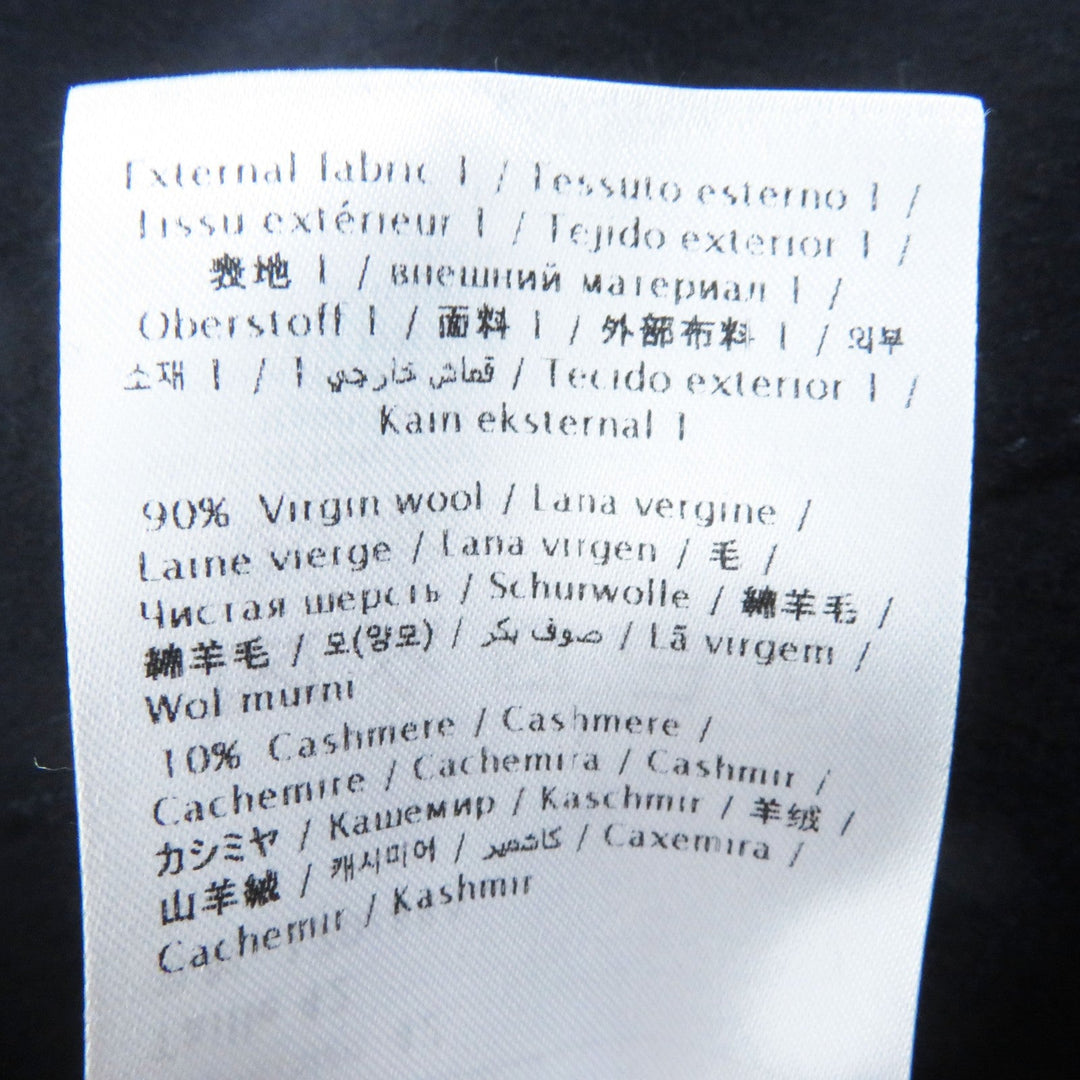 External fabric 1 / Tessuto esterno 1 /
Tissu extérieur 1 / Tejido exterior 1 /
表地 1 / внешний материал 1 /
Oberstoff 1 / 面料 1 / 外部布料 1 / 외부
소재 1 / قماش خارجي 1 / Tecido exterior 1 /
Kain eksternal 1
90% Virgin wool / Lana vergine /
Laine vierge / Lana virgen / 毛 /
Чистая шерсть / Schurwolle / 綿羊毛 /
綿羊毛 / 모(양모) / صوف بكر / Lã virgem /
Wol murni
10% Cashmere / Cashmere /
Cachemire / Cachemira / Cashmir /
カシミヤ / Кашемир / Kaschmir / 羊绒 /
山羊絨 / 캐시미어 / كاشمير / Caxemira /
Cachemir / Kashmir